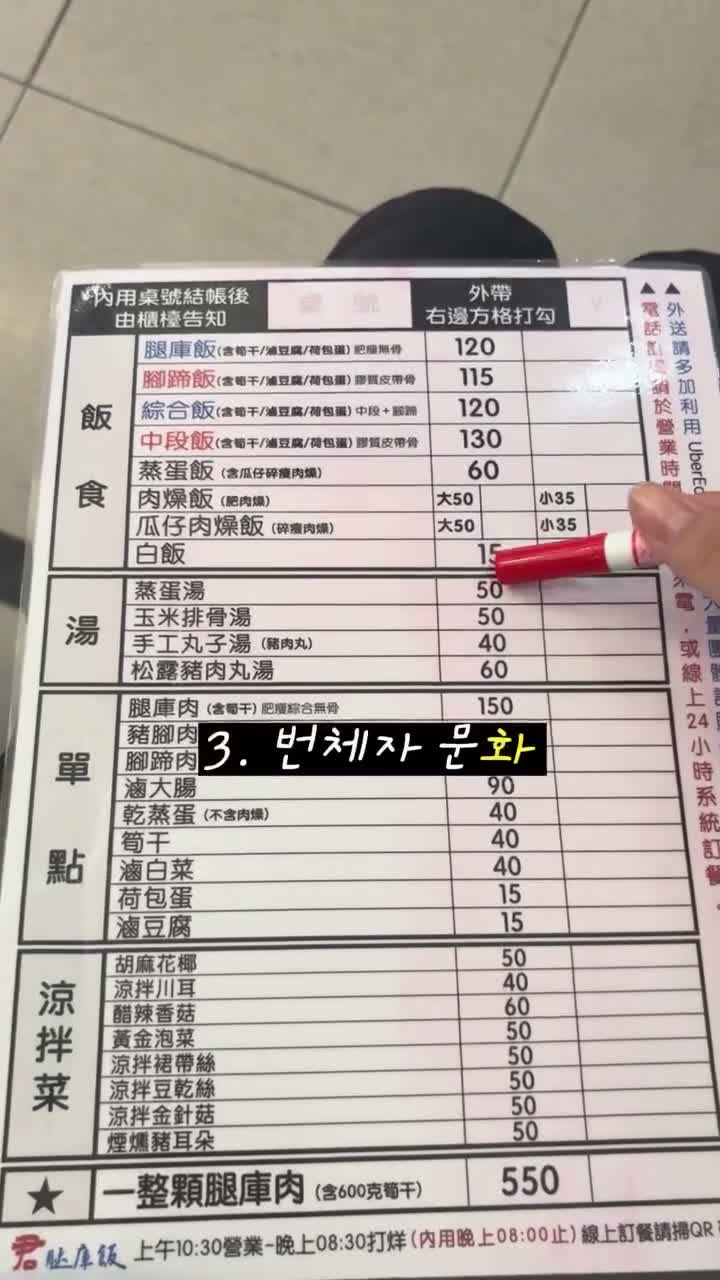 內用桌號結帳後
由櫃檯告知
桌號
外帶
右邊方格打勾
V
飯食
腿庫飯(含筍干/滷豆腐/荷包蛋) 肥瘦無骨 120
腳蹄飯(含筍干/滷豆腐/荷包蛋) 膠質皮帶骨 115
綜合飯(含筍干/滷豆腐/荷包蛋) 中段+腳蹄 120
中段飯(含筍干/滷豆腐/荷包蛋) 膠質皮帶骨 130
蒸蛋飯 (含瓜仔碎瘦肉燥) 60
肉燥飯 (肥肉燥) 大50 小35
瓜仔肉燥飯 (碎瘦肉燥) 大50 小35
白飯 15
湯
蒸蛋湯 50
玉米排骨湯 50
手工丸子湯 (豬肉丸) 40
松露豬肉丸湯 60
單點
腿庫肉 (含筍干) 肥瘦綜合無骨 150
豬腳肉
腳蹄肉
滷大腸 90
乾蒸蛋 (不含肉燥) 40
筍干 40
滷白菜 40
荷包蛋 15
滷豆腐 15
3. 번체자 문화
涼拌菜
胡麻花椰 50
涼拌川耳 40
醋辣香菇 60
黃金泡菜 50
涼拌裙帶絲 50
涼拌豆乾絲 50
涼拌金針菇 50
煙燻豬耳朵 50
★ 一整顆腿庫肉 (含600克筍干) 550
君 腿庫飯 上午10:30營業-晚上08:30打烊(內用晚上08:00止) 線上訂餐請掃QR
▲外送請多加利用 UberEa
▲電話 請於營業時間 來電,或線上24小時系統訂餐。